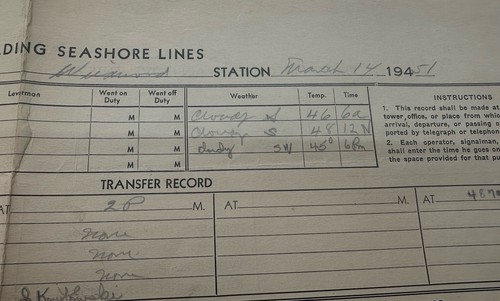 DING SEASHORE LINES
Wildwood STATION March 14 194 51
Leverman Went on Duty Went off Duty Weather Temp. Time INSTRUCTIONS
M M Cloudy S 46 6a
M M Cloudy S 48 12 N
M M Cloudy SW 45° 6Pm
M M
1. This record shall be made at
tower, office, or place from whic
arrival, departure, or passing o
ported by telegraph or telephon
2. Each operator, signalman,
shall enter the time he goes on
the space provided for that pu
TRANSFER RECORD
AT 2P M. AT M. AT 487
none
none
none